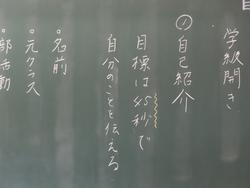 学級開き
①自己紹介
目標は45秒で
自分のことを伝える
・名前
・元クラス
・部活動